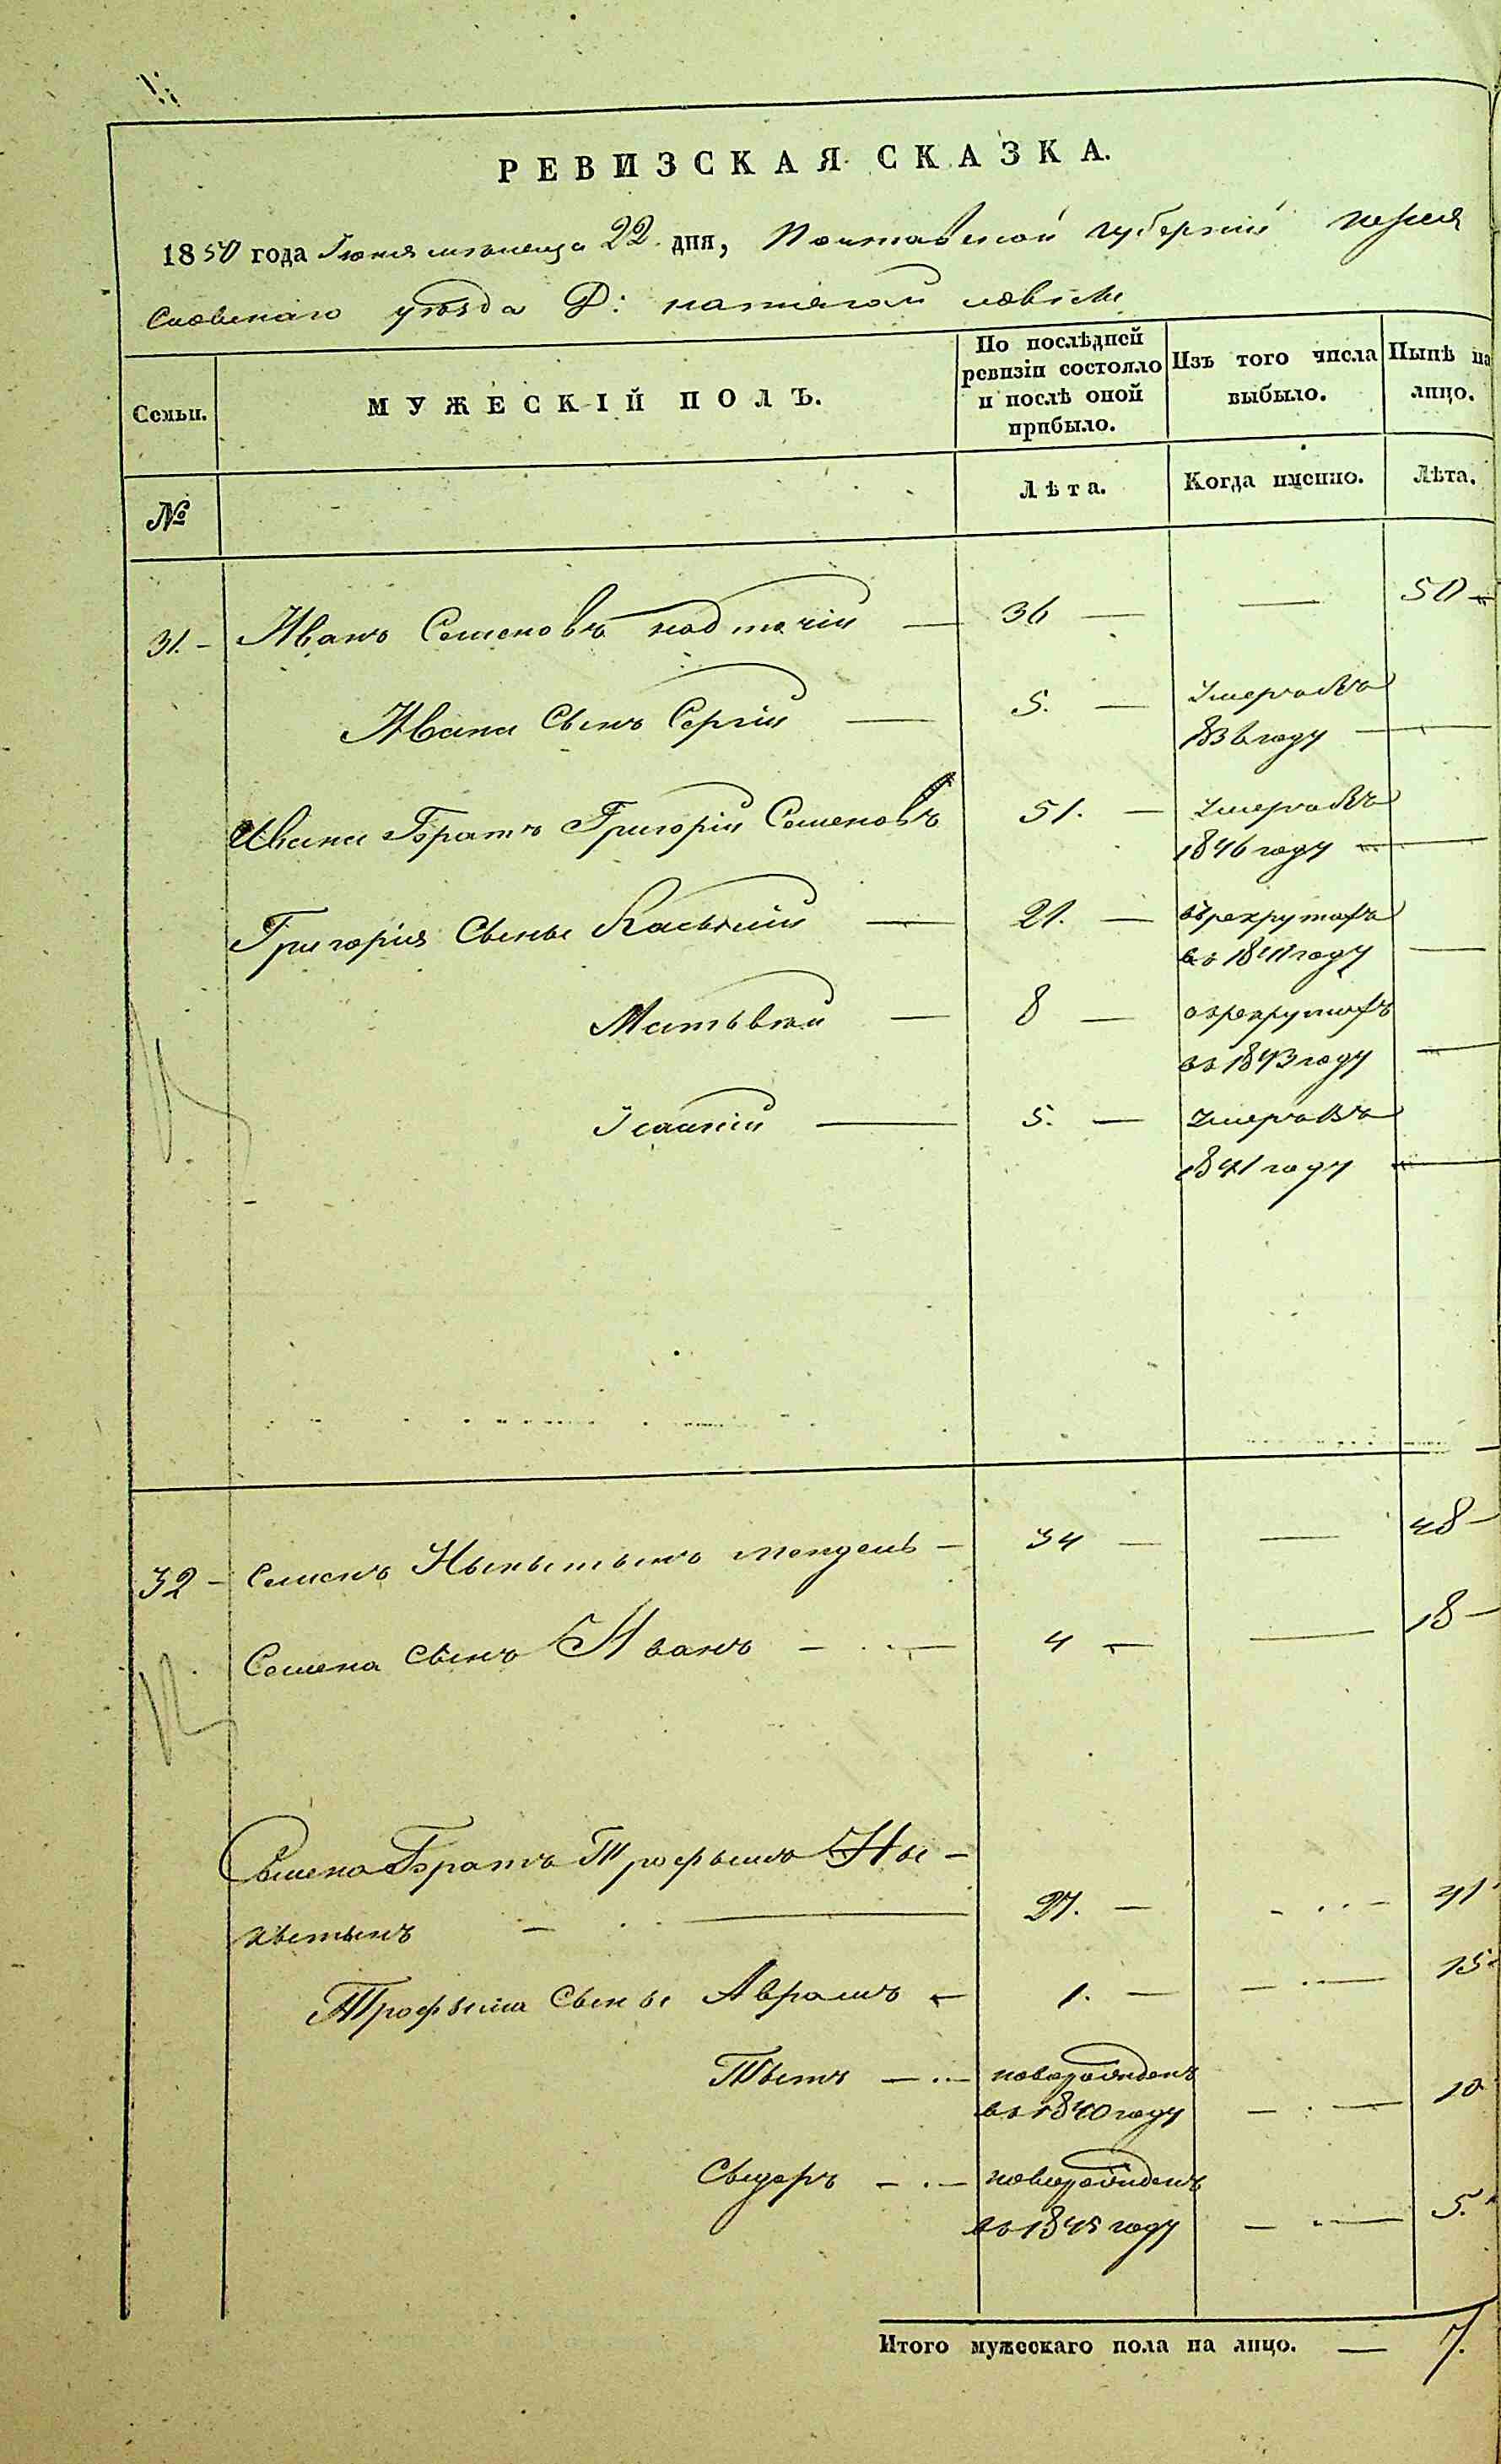 РЕВИЗСКАЯ СКАЗКА.
1850 года Іюня мѣсяца 22 дня, Полтавской губерніи Перея
славскаго уѣзда Д:
Семьи.
МУЖЕСКІЙ ПОЛЪ.
По послѣдней ревизіи состояло и послѣ оной прибыло.
Изъ того числа выбыло.
Нынѣ на лицо.
№
Лѣта.
Когда именно.
Лѣта.
31.- Иванъ Семеновъ — 36 — — 50-
Ивана Сынъ Сергій — 5. — Умеръ въ
1836 году —
Ивана Братъ Григорій Семеновъ 51. — Умеръ въ
1846 году —
Григорія Сыны Касьяній — 21. — въ рекрутахъ
въ 1841 году —
Матьвѣй — 8 — въ рекрутахъ
въ 1843 году —
Ісакий — 5. — Умеръ въ
1841 году —
32- Семенъ Ныкытынъ — 34 — — 48-
Семена сынъ Иванъ — 4 — — 18-
Семена Братъ Трофымъ Ны-
кытынъ — 27. — — 41
Трофыма Сыны Аврамъ — 1. — — 15
Тытъ — новорожденъ
въ 1840 году — 10
Сыдоръ — новорожденъ
въ 1845 году — 5.
Итого мужескаго пола на лицо. — 7.